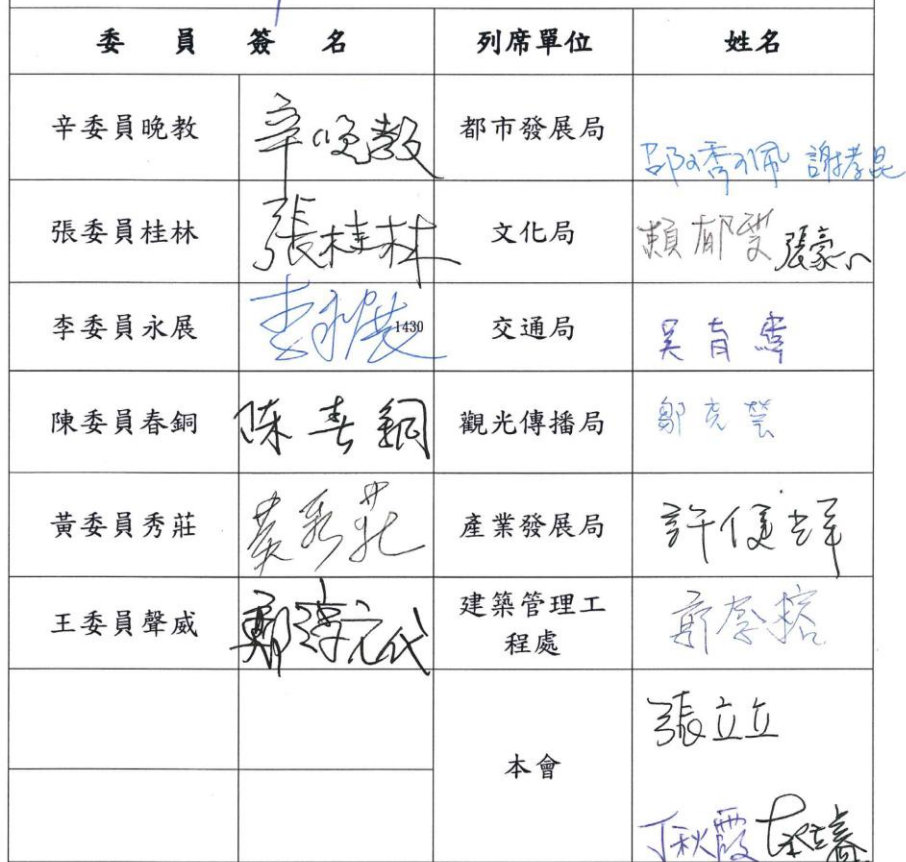 委員簽名 列席單位 姓名
辛委員晚教 辛晚教 都市發展局 邵琇珮 謝孝昆
張委員桂林 張桂林 文化局 賴郁雯 張豪
李委員永展 李永展 1430 交通局 吳育
陳委員春銅 陳春銅 觀光傳播局 鄒克
黃委員秀莊 黃秀莊 產業發展局 許俊
王委員聲威 鄭 代 建築管理工
程處
張立立
本會
丁秋霞